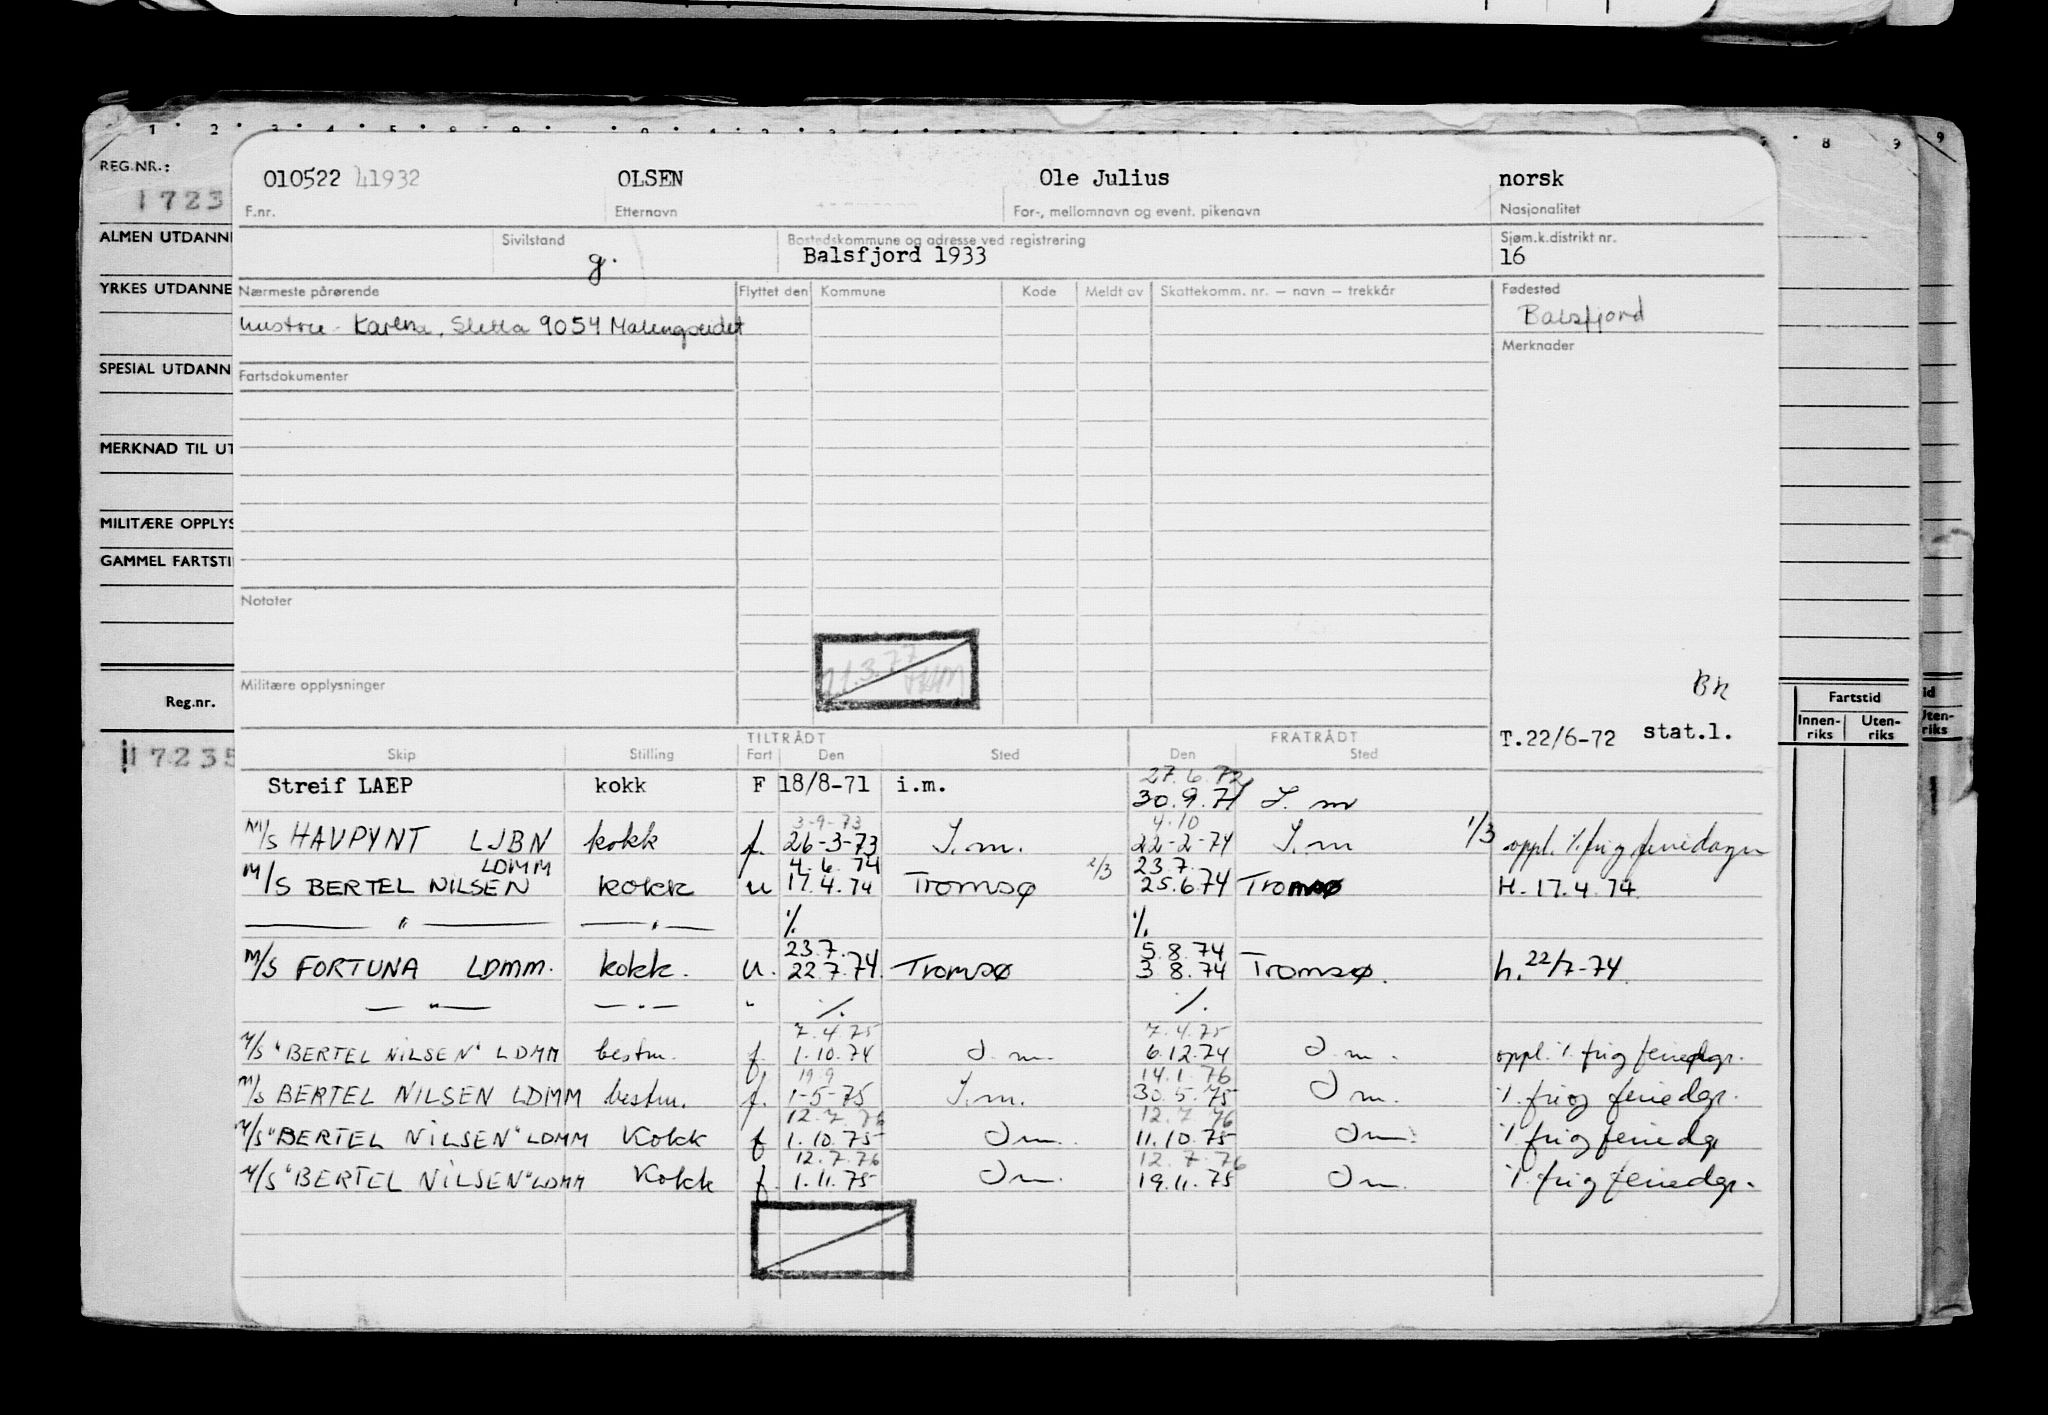 REG.NR.:
1723
ALMEN UTDANNE
YRKES UTDANNE
SPESIAL UTDANN
MERKNAD TIL UT
MILITÆRE OPPLYS
GAMMEL FARTSTI
Reg.nr.
17235
010522 41932 OLSEN Ole Julius norsk
F.nr. Etternavn For-, mellomnavn og event. pikenavn Nasjonalitet
Sivilstand Bostedskommune og adresse ved registrering Sjøm.k.distrikt nr.
g. Balsfjord 1933 16
Nærmeste pårørende Flyttet den Kommune Kode Meldt av Skattekomm. nr. — navn — trekkår Fødested
hustru - Karlna, Sletta 9054 Malengseidet Balsfjord
Merknader
Fartsdokumenter
Notater
21.3.77
Militære opplysninger
BN
T.22/6-72 stat.l.
TILTRÅDT FRATRÅDT
Skip Stilling Fart Den Sted Den Sted
27.6.72
Streif LAEP kokk F 18/8-71 i.m. 30.9.71 I.m
3-9-73 4.10
M/S HAVPYNT LJBN kokk f. 26-3-73 I.m. 22-2-74 I.m 1/3 oppl. %. fri og feriedager
LDMM 4.6.74 2/3 23.7.
M/S BERTEL NILSEN kokk u 17.4.74 Tromsø 25.6.74 Tromsø H. 17.4.74
— " — — " — %. %.
23.7. 5.8.74
M/S FORTUNA LDMM. kokk. u. 22.7.74. Tromsø 3 8.74 Tromsø. h. 22/7-74
— " — — " — " %. %.
7.4.75 7.4.75
M/S "BERTEL NILSEN" LDMM bestm. f. 1.10.74 I.m. 6.12.74 I.m. oppl. %. fri og feriedgr.
19.9 14.1.76
M/S BERTEL NILSEN LDMM bestm. f. 1-5-75 I.m. 30.5.75 I m. %. fri og feriedgr.
12.7.76 12.7.76
M/S "BERTEL NILSEN" LDMM Kokk f 1.10.75 I m. 11.10.75 I m. % fri og feriedg
12.7.76 12.7.76
M/S "BERTEL NILSEN" LDMM Kokk f. 1.11.75 I m. 19.11.75 I m. %. fri og feriedgr.
Fartstid
Innen- Uten-
riks riks